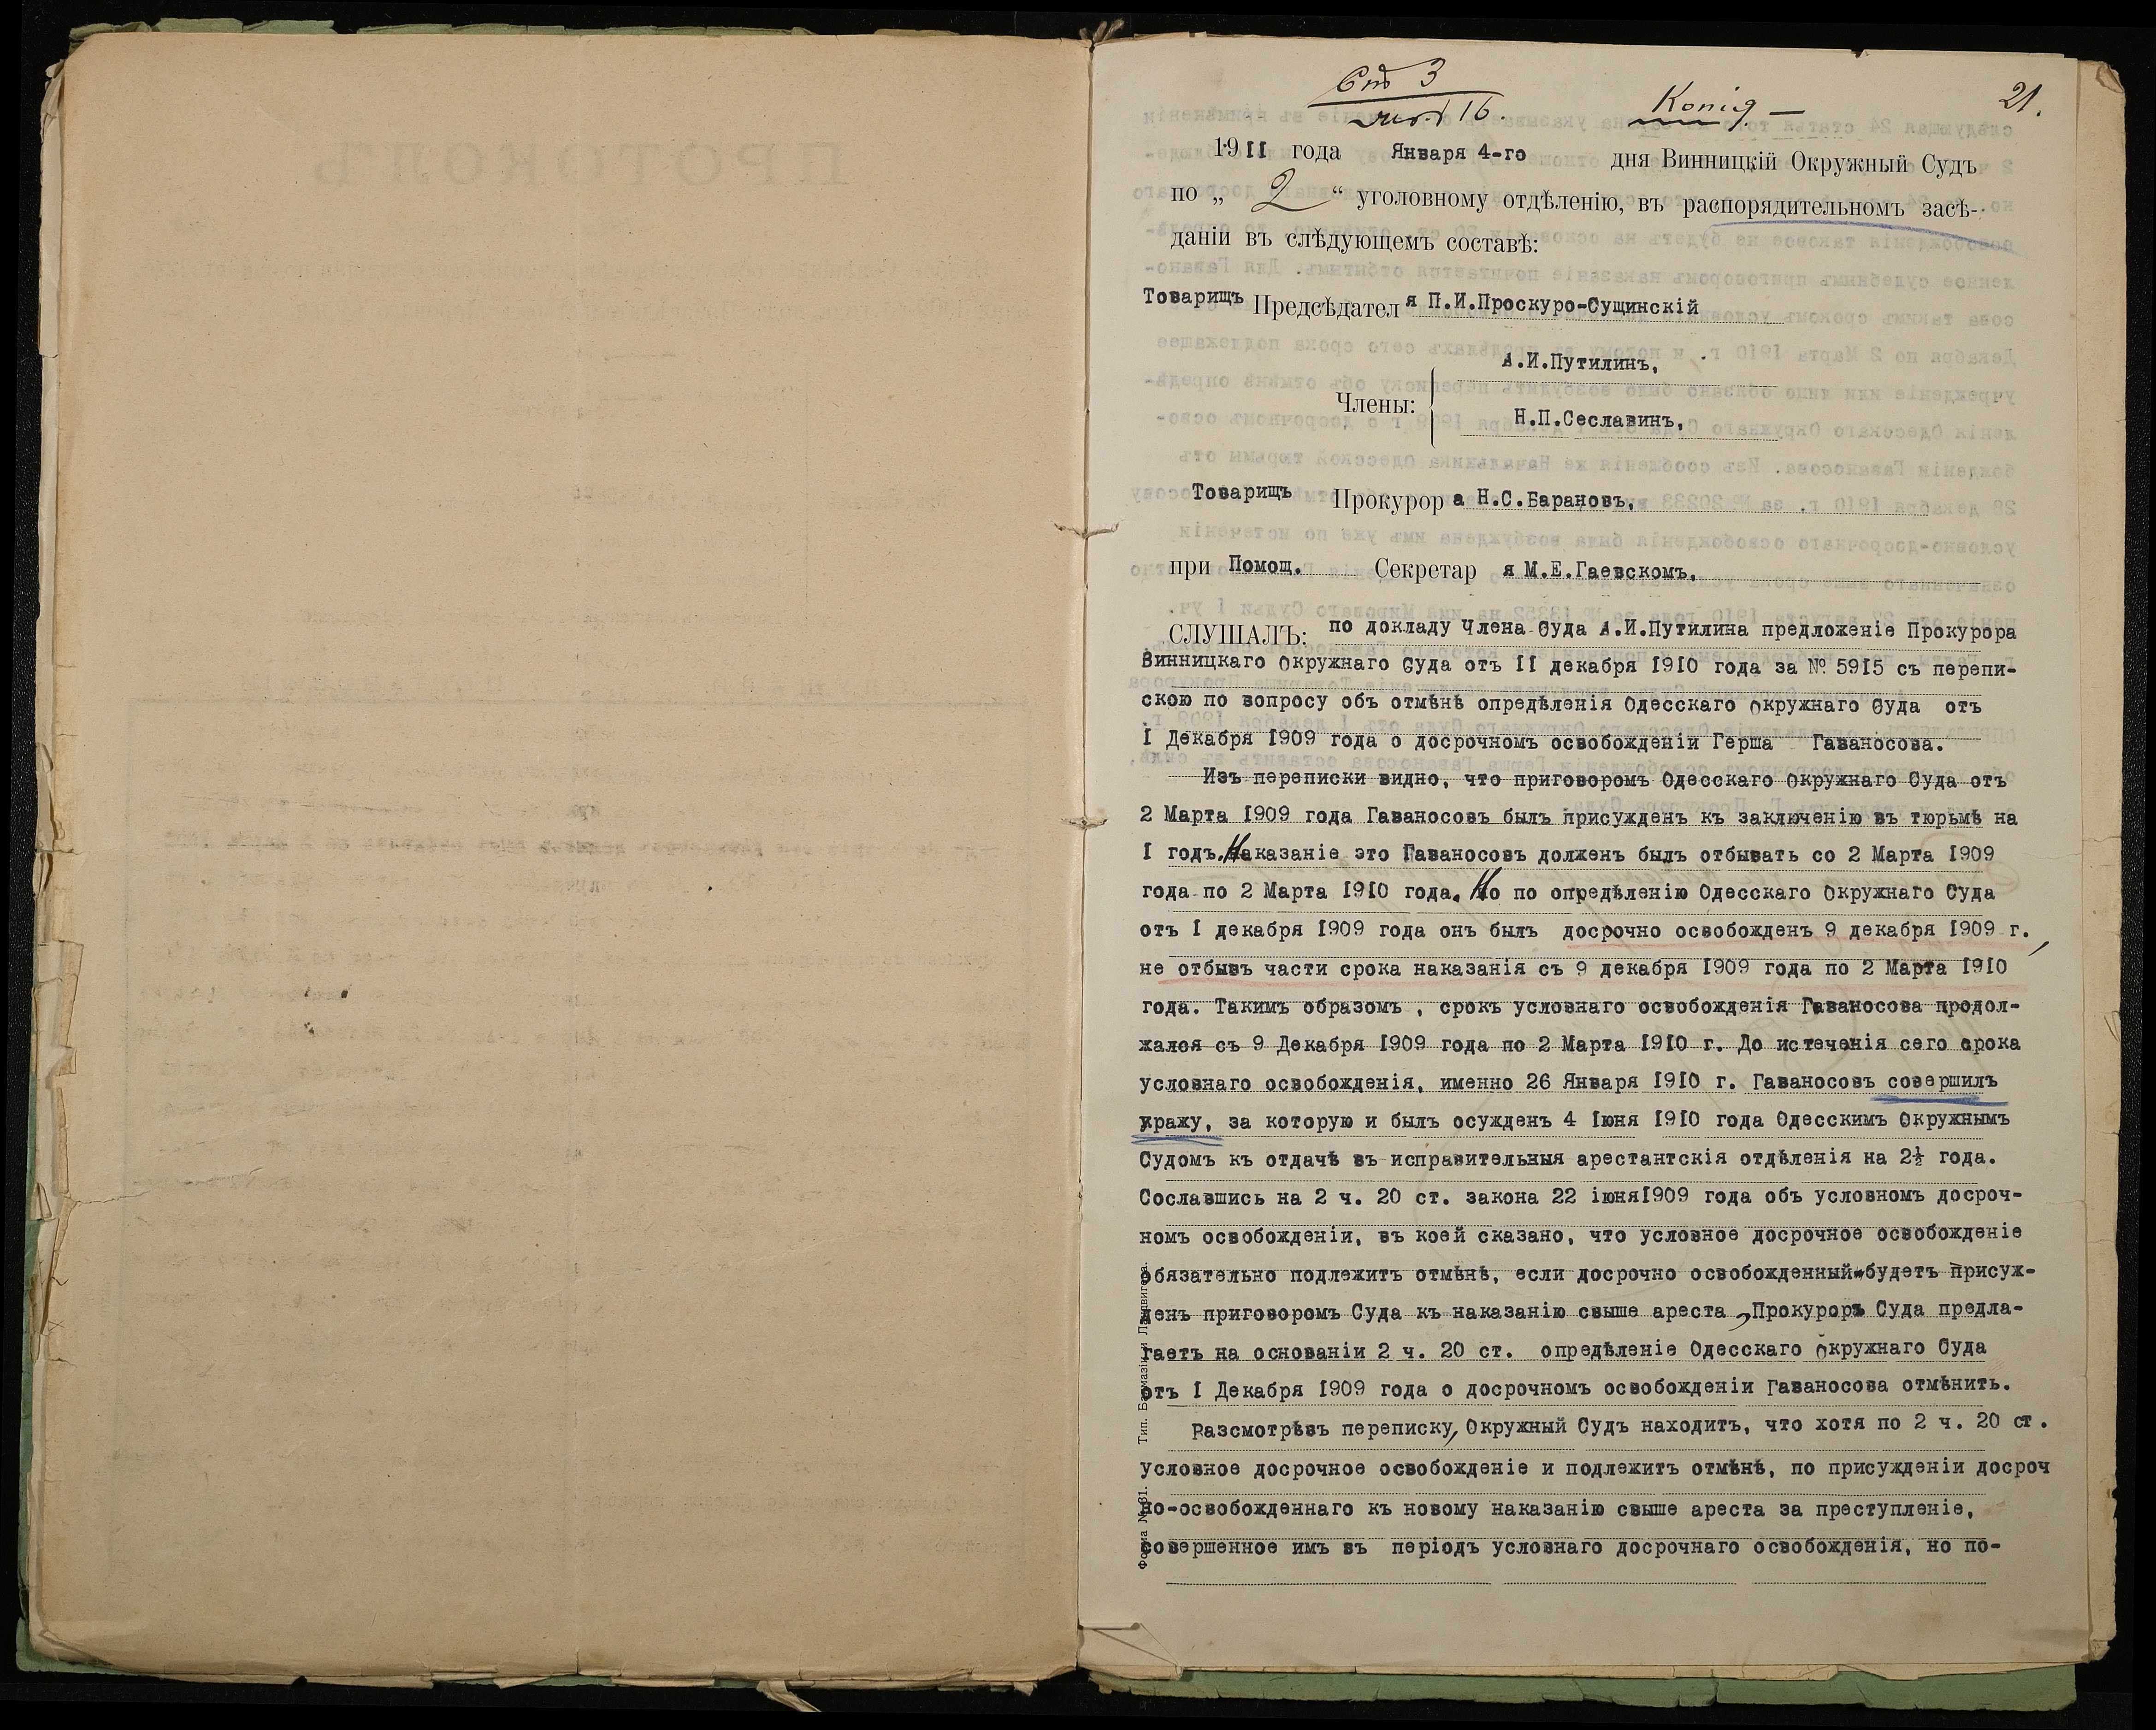 3
16.
Копія. —
21.
1911 года Января 4-го дня Винницкій Окружный Судъ
по „ 2 “ уголовному отдѣленію, въ распорядительномъ засѣ-
даніи въ слѣдующемъ составѣ:
Товарищъ Предсѣдателя П.И.Проскуро-Сущинскій
А.И.Путилинъ,
Члены:
Н.П.Сеславинъ,
Товарищъ Прокурора Н.С.Барановъ,
при Помощ. Секретаря М.Е.Гаевскомъ,
СЛУШАЛЪ: по докладу Члена Суда А.И.Путилина предложеніе Прокурора
Винницкаго Окружнаго Суда отъ II декабря 1910 года за № 5915 съ перепи-
скою по вопросу объ отмѣнѣ опредѣленія Одесскаго Окружнаго Суда отъ
I Декабря 1909 года о досрочномъ освобожденіи Герша Гаваносова.
Изъ переписки видно, что приговоромъ Одесскаго Окружнаго Суда отъ
2 Марта 1909 года Гаваносовъ былъ присужденъ къ заключенію въ тюрьмѣ на
I годъ. Наказаніе это Гаваносовъ долженъ былъ отбывать со 2 Марта 1909
года по 2 Марта 1910 года. Но по опредѣленію Одесскаго Окружнаго Суда
отъ I декабря 1909 года онъ былъ досрочно освобожденъ 9 декабря 1909 г.,
не отбывъ части срока наказанія съ 9 декабря 1909 года по 2 Марта 1910
года. Такимъ образомъ , срокъ условнаго освобожденія Гаваносова продол-
жался съ 9 Декабря 1909 года по 2 Марта 1910 г. До истеченія сего срока
условнаго освобожденія, именно 26 Января 1910 г. Гаваносовъ совершилъ
кражу, за которую и былъ осужденъ 4 Іюня 1910 года Одесскимъ Окружнымъ
Судомъ къ отдачѣ въ исправительныя арестантскія отдѣленія на 2½ года.
Сославшись на 2 ч. 20 ст. закона 22 іюня1909 года объ условномъ досроч-
номъ освобожденіи, въ коей сказано, что условное досрочное освобожденіе
обязательно подлежитъ отмѣнѣ, если досрочно освобожденный будетъ присуж-
денъ приговоромъ Суда къ наказанію свыше ареста, Прокуроръ Суда предла-
гаетъ на основаніи 2 ч. 20 ст. опредѣленіе Одесскаго Окружнаго Суда
отъ I Декабря 1909 года о досрочномъ освобожденіи Гаваносова отмѣнить.
Разсмотрѣвъ переписку, Окружный Судъ находитъ, что хотя по 2 ч. 20 ст.
условное досрочное освобожденіе и подлежитъ отмѣнѣ, по присужденіи досроч
но-освобожденнаго къ новому наказанію свыше ареста за преступленіе,
совершенное имъ въ періодъ условнаго досрочнаго освобожденія, но по-
Форма № 81. Тип.
ПРОТОКОЛЪ